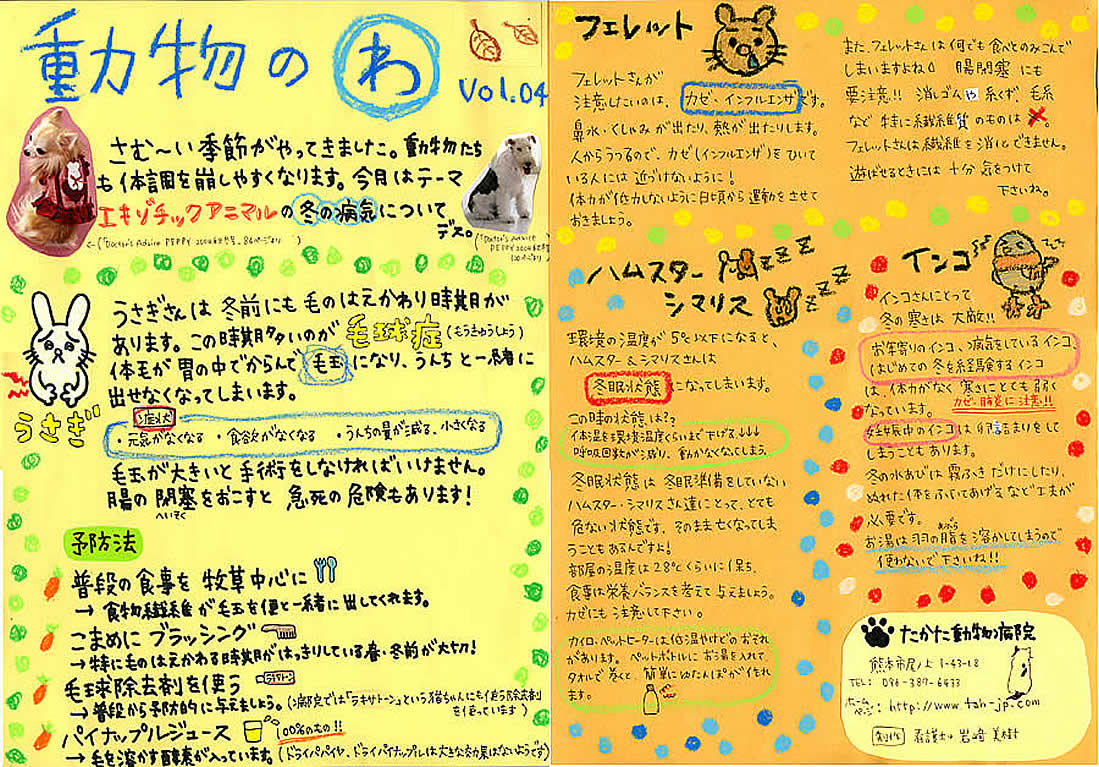 動物の わ
Vol.04
さむ〜い季節がやってきました。動物たち
も体調を崩しやすくなります。今月はテーマ
エキゾチックアニマルの冬の病気について
デス。
うさぎさんは 冬前にも 毛のはえかわり時期が
あります。この時期多いのが 毛球症(もうきゅうしょう)
体毛が 胃の中でからんで 毛玉 になり、うんちと一緒に
出せなくなってしまいます。
うさぎ
症状
・元気がなくなる ・食欲がなくなる ・うんちの量が減る、小さくなる
毛玉が大きいと 手術をしなければいけません。
腸の 閉塞をおこすと 急死の危険もあります!
へいそく
予防法
普段の食事を 牧草中心に
→ 食物繊維が毛玉を便と一緒に出してくれます。
こまめに ブラッシング
→ 特に毛のはえかわる時期がはっきりしている春・冬前が大切!
毛球除去剤を使う
→ 普段から予防的に与えましょう。(病院では「ラキサトーン」という猫ちゃんにも使う除去剤
を使っています)
パイナップルジュース 100%のもの!!
→ 毛を溶かす酵素が入っています。(ドライパパイヤ、ドライパイナップルは大きな効果はないようです)
フェレット
フェレットさんが
注意したいのは、カゼ・インフルエンザです。
鼻水・くしゃみが出たり、熱が出たりします。
人からうつるので、カゼ(インフルエンザ)をひいて
いる人には 近づけないように!
体力が低力しないように日頃から 運動をさせて
おきましょう。
また、フェレットさんは何でも食べとのみこんで
しまいますよね 腸閉塞にも
要注意!! 消しゴムや糸くず、毛糸
など 特に繊維質のものは ✕。
フェレットさんは繊維を消化できません。
遊ばせるときには 十分 気をつけて
下さいね。
ハムスター
シマリス
zzz
zzz
環境の温度が 5℃以下になると、
ハムスター&シマリスさんは
冬眠状態 になってしまいます。
この時の状態は??
体温を環境温度くらいまで下げる↓↓↓
呼吸回数が減り、動かなくなってしまう。
冬眠状態は 冬眠準備をしていない
ハムスター・シマリスさん達にとって、とても
危ない状態です。そのまま亡くなってしま
うこともあるんですよ!
部屋の温度は 28℃くらいに保ち、
食事は栄養バランスを考えて与えましょう。
カゼにも注意して下さい。
カイロ、ペットヒーターは低温やけどのおそれ
があります。 ペットボトルに お湯を入れて
タオルで巻くと、簡単にゆたんぽが作れ
ます。
インコ
インコさんにとって
冬の寒さは 大敵!!
お年寄りのインコ、病気をしているインコ、
はじめての冬を経験するインコ
は、体力がなく 寒さにとても弱く
なっています。 カゼ・肺炎に注意!!
妊娠中のインコは 卵詰まりをして
しまうこともあります。
冬の水あびは 霧ふきだけにしたり、
ぬれた体をふいてあげるなど工夫が
必要です。
お湯は羽の脂を溶かしてしまうので
あぶら
使わないで下さいね!!
たかた動物病院
熊本市尾ノ上 1-43-18
TEL: 096-387-6433
ホームページ: http://www.tah-jp.com
制作 看護士 岩﨑 美樹